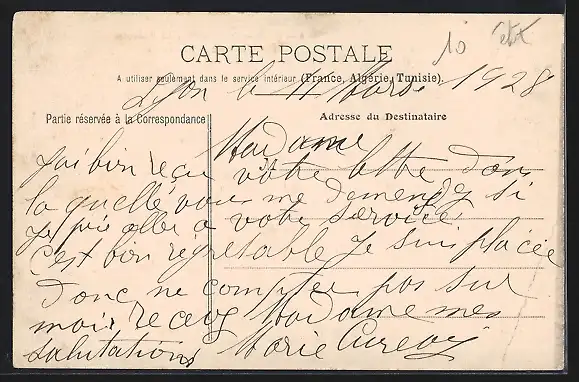 10
CARTE POSTALE
A utiliser seulement dans le service intérieur (France, Algérie, Tunisie).
Lyon le 11 Mards 1928
Partie réservée à la Correspondance
Adresse du Destinataire
Madame
J'ai bien reçu votre lettre dans
la quelle vous me demendez si
je puis aller a votre service
C'est bien regretable je suis placée
Donc ne compter pas sur
moi recevez Madame mes
salutations Marie